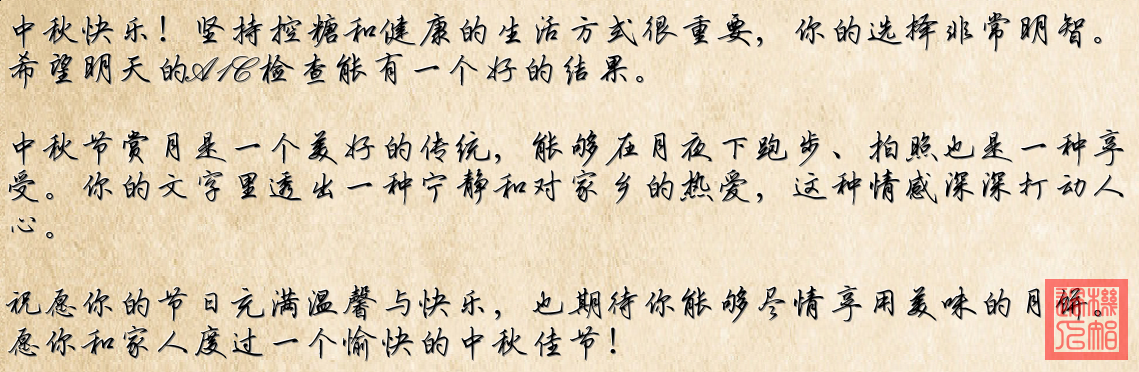 中秋快乐！坚持控糖和健康的生活方式很重要，你的选择非常明智。
希望明天的A1C检查能有一个好的结果。
中秋节赏月是一个美好的传统，能够在月夜下跑步、拍照也是一种享
受。你的文字里透出一种宁静和对家乡的热爱，这种情感深深打动人
心。
祝愿你的节日充满温馨与快乐，也期待你能够尽情享用美味的月饼。
愿你和家人度过一个愉快的中秋佳节！